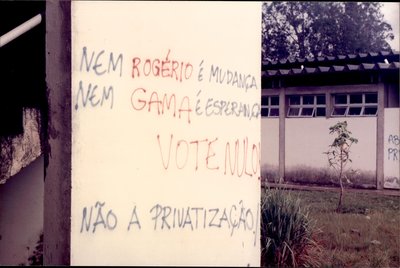 NEM ROGÉRIO É MUDANÇA
NEM GAMA É ESPERANÇA
VOTE NULO
NÃO A PRIVATIZAÇÃO